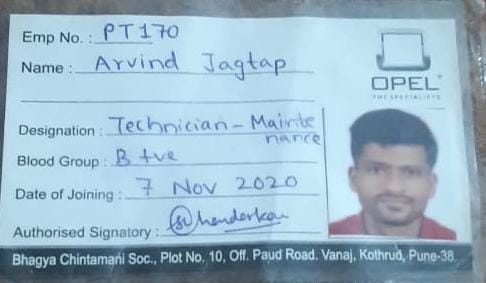 Emp No. : PT170
Name : Arvind Jagtap
OPEL
THE SPECIALISTS
Designation : Technician - Mainte
nance
Blood Group : B +ve
Date of Joining : 7 Nov 2020
Authorised Signatory :
Bhagya Chintamani Soc., Plot No. 10, Off. Paud Road. Vanaj, Kothrud, Pune-38.